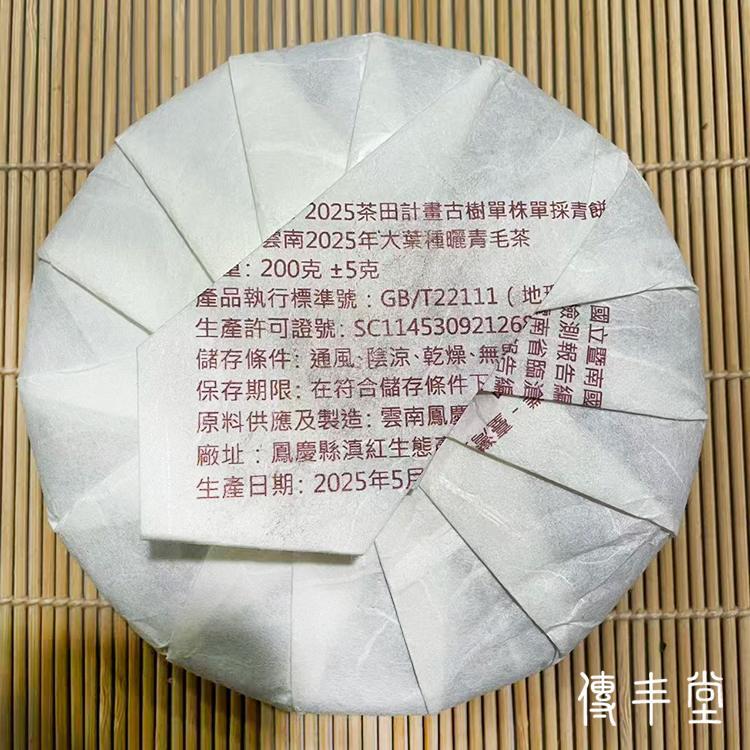 2025茶田計畫古樹單株單採青餅
雲南2025年大葉種曬青毛茶
量: 200克 ±5克
產品執行標準號: GB/T22111 (地
生產許可證號: SC11453092126
儲存條件: 通風、陰涼、乾燥、無
保存期限: 在符合儲存條件下
原料供應及製造: 雲南鳳慶
廠址: 鳳慶縣滇紅生態
生產日期: 2025年5月
國立暨南國
檢測報告編
南省臨滄
告編
臺灣
傳丰堂